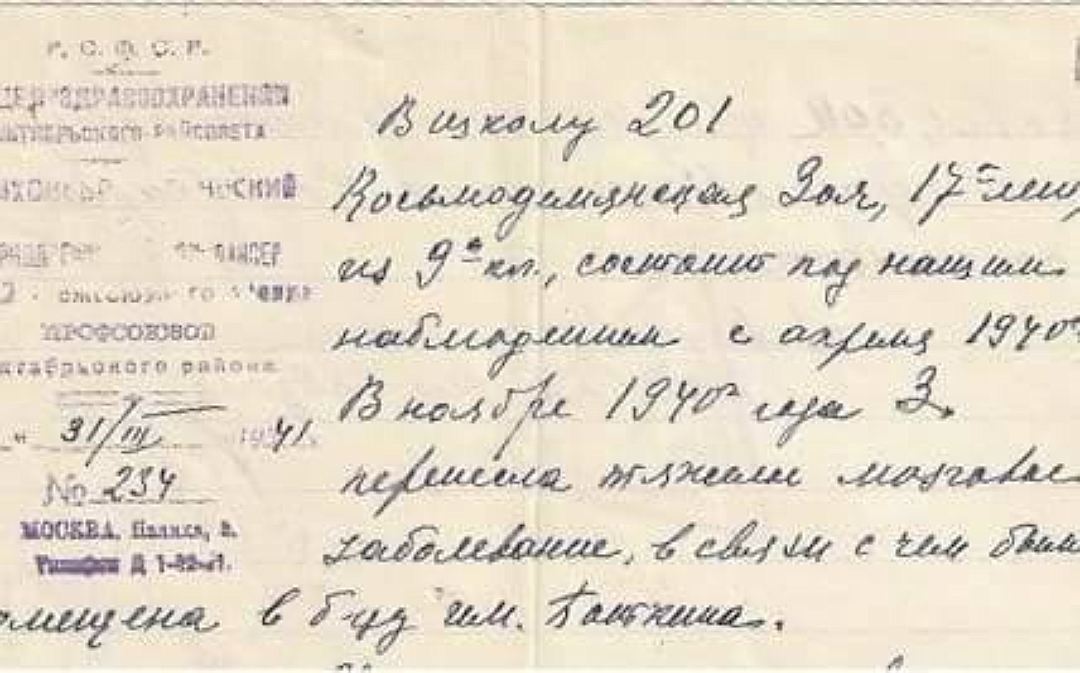 Р. С. Ф. С. Р.
ЗДРАВООХРАНЕНИЯ
РАЙСОВЕТА
ПРОФСОЮЗОВ
района
" 31/III 1941.
№ 234
МОСКВА.
Телефон Д
В школу 201
Космодемьянская Зоя, 17 лет,
из 9ª кл., состоит под нашим
наблюдением с апреля 1940
В ноябре 1940г года З.
перенесла тяжелое мозговое
заболевание, в связи с чем была
помещена в б-цу им. Боткина.